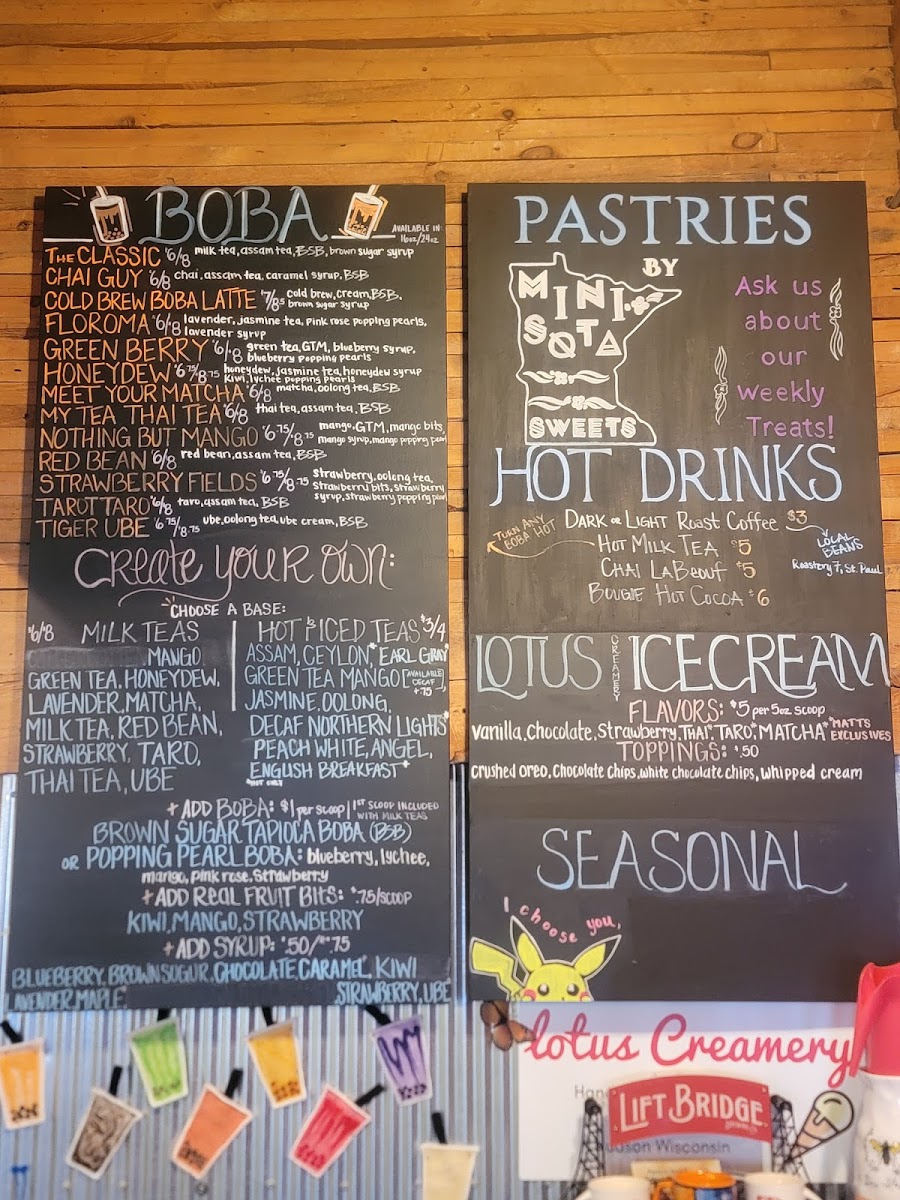 BOBA
AVAILABLE IN
16oz/24oz
THE CLASSIC $6/8 milk tea, assam tea, BSB, brown sugar syrup
CHAI GUY $6/8 chai, assam tea, caramel syrup, BSB
COLD BREW BOBA LATTE $7/8.5 cold brew, cream, BSB,
brown sugar syrup
FLOROMA $6/8 lavender, jasmine tea, pink rose popping pearls,
lavender syrup
GREEN BERRY $6/8 green tea, GTM, blueberry syrup,
blueberry popping pearls
HONEYDEW $6.75/8.75 honeydew, jasmine tea, honeydew syrup
kiwi, lychee popping pearls
MEET YOUR MATCHA $6/8 matcha, oolong tea, BSB
MY TEA THAI TEA $6/8 thai tea, assam tea, BSB
NOTHING BUT MANGO $6.75/8.75 mango, GTM, mango bits,
mango syrup, mango popping pearl
RED BEAN $6/8 red bean, assam tea, BSB
STRAWBERRY FIELDS $6.75/8.75 strawberry, oolong tea,
strawberry bits, strawberry
syrup, strawberry popping pearl
TAROT TARO $6/8 taro, assam tea, BSB
TIGER UBE $6.75/8.75 ube, oolong tea, ube cream, BSB
Create your own:
CHOOSE A BASE:
$6/8 MILK TEAS
MANGO
GREEN TEA, HONEYDEW,
LAVENDER, MATCHA,
MILK TEA, RED BEAN,
STRAWBERRY, TARO,
THAI TEA, UBE
HOT & ICED TEAS $3/4
ASSAM, CEYLON* EARL GRAY*
GREEN TEA MANGO [AVAILABLE DECAF +.75],
JASMINE, OOLONG,
DECAF NORTHERN LIGHTS*
PEACH WHITE, ANGEL,
ENGLISH BREAKFAST*
*HOT ONLY
+ ADD BOBA: $1 per scoop | 1ST SCOOP INCLUDED
WITH MILK TEAS
BROWN SUGAR TAPIOCA BOBA (BSB)
OR POPPING PEARL BOBA: blueberry, lychee,
mango, pink rose, strawberry
+ ADD REAL FRUIT BITS: $.75/SCOOP
KIWI, MANGO, STRAWBERRY
+ ADD SYRUP: $.50/$.75
BLUEBERRY, BROWN SUGUR, CHOCOLATE, CARAMEL, KIWI
LAVENDER, MAPLE STRAWBERRY, UBE
PASTRIES
BY
MINI
SOTA
SWEETS
Ask us
about
our
weekly
Treats!
HOT DRINKS
TURN ANY
BOBA HOT
DARK or LIGHT ROAST COFFEE $3
HOT MILK TEA $5
CHAI LABEOUF $5
BOUGIE HOT COCOA $6
LOCAL
BEANS
Roastery 7, St. Paul
LOTUS CREAMERY ICECREAM
FLAVORS: $5 per 5oz scoop
vanilla, chocolate, strawberry, THAI*, TARO*, MATCHA* *MATTS
EXCLUSIVES
TOPPINGS: $.50
crushed oreo, chocolate chips, white chocolate chips, whipped cream
SEASONAL
I choose you,
lotus Creamery
LIFT BRIDGE
Hudson Wisconsin